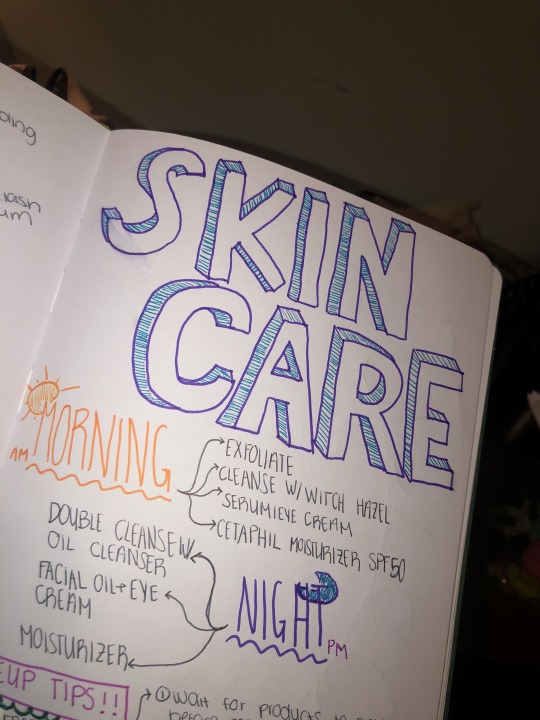 ding
lash
um
SKIN
CARE
AM MORNING
EXFOLIATE
CLEANSE W/ WITCH HAZEL
SERUM/EYE CREAM
CETAPHIL MOISTURIZER SPF50
DOUBLE CLEANSE W/
OIL CLEANSER
FACIAL OIL + EYE
CREAM
MOISTURIZER
NIGHT PM
EUP TIPS!!
① Wait for products to
before